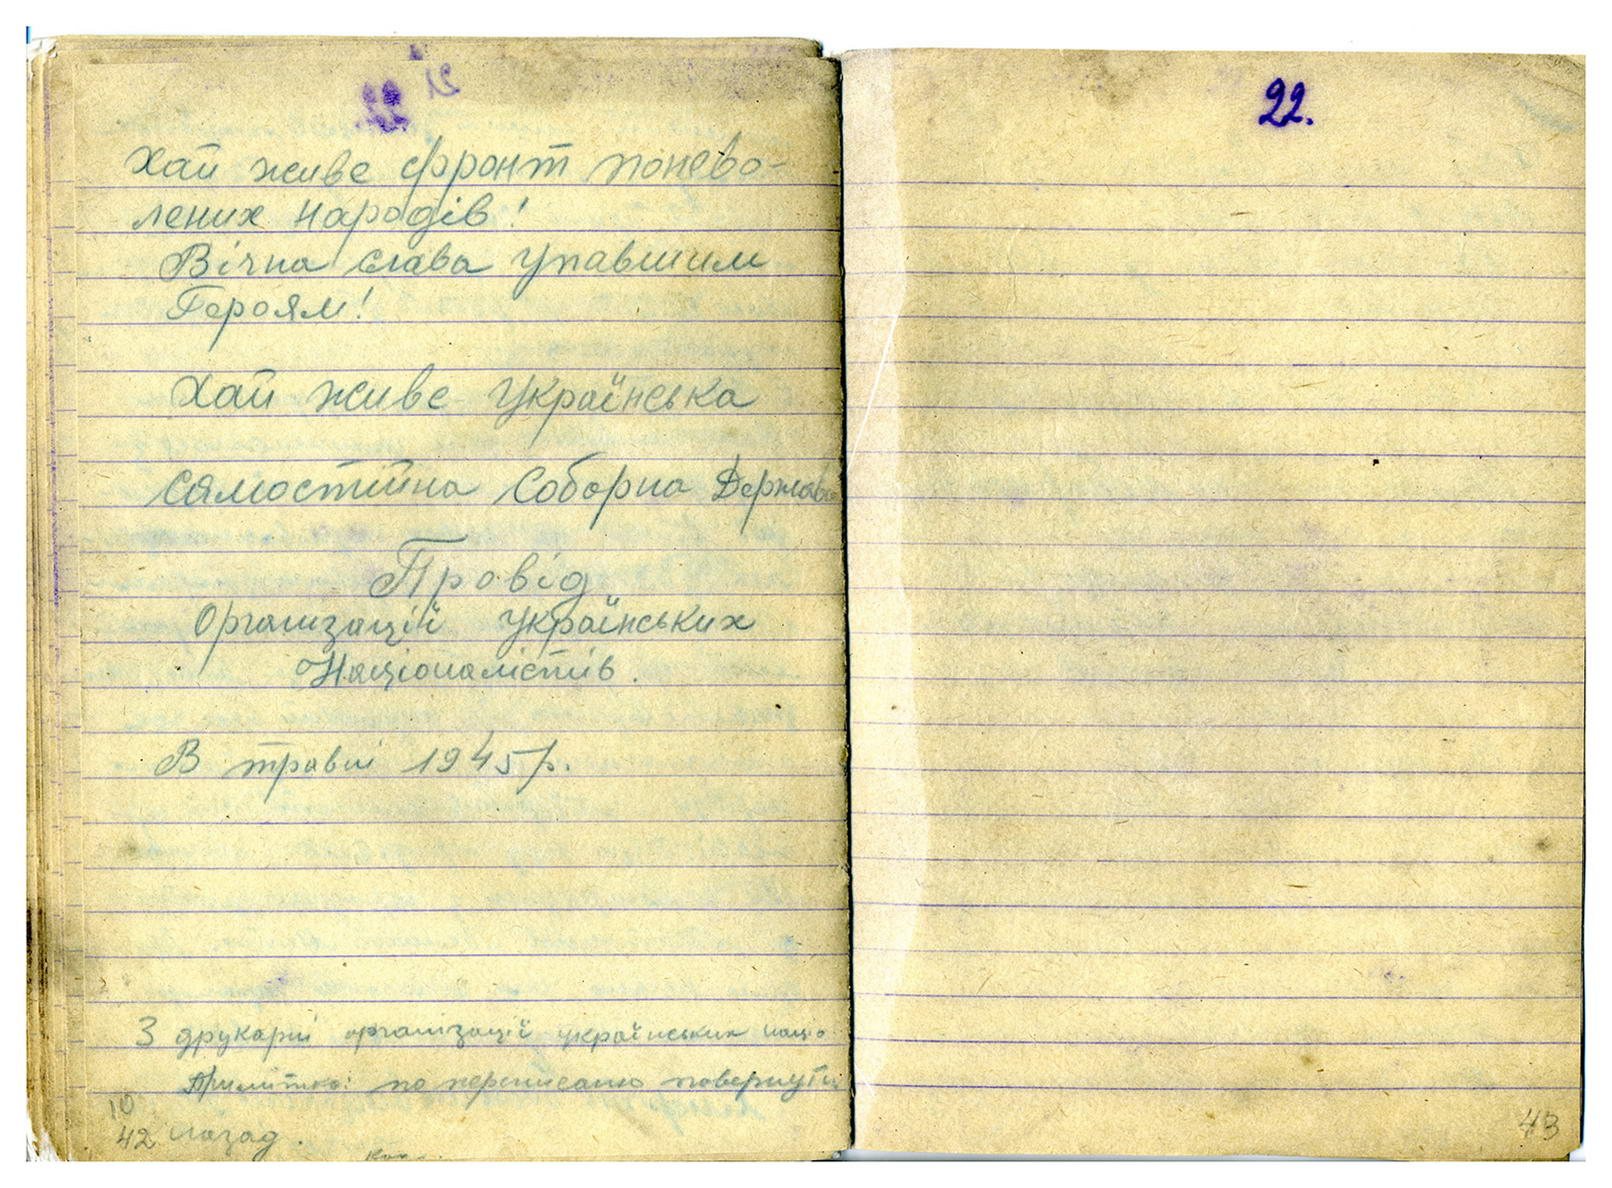 21
22
Хай живе фронт понево-
лених народів!
Вічна слава упавшим
Героям!
Хай живе Українська
Самостійна Соборна Держава
Провід
Організацій Українських
Націоналістів.
В травні 1945 р.
З друкарні організації українських націо
Примітка: по переписаню повернути
10
42 назад.
22.
43